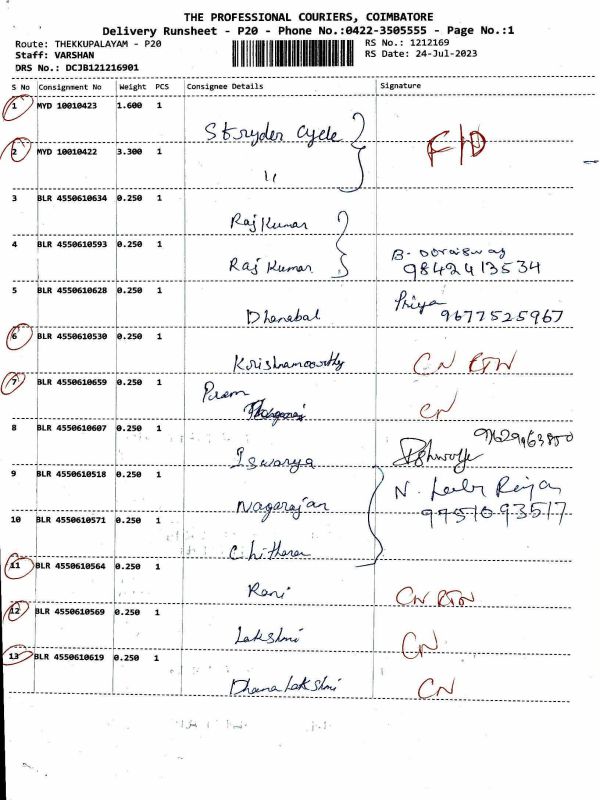 THE PROFESSIONAL COURIERS, COIMBATORE
Delivery Runsheet - P20 - Phone No.:0422-3505555 - Page No.:1
Route: THEKKUPALAYAM - P20 RS No.: 1212169
Staff: VARSHAN RS Date: 24-Jul-2023
DRS No.: DCJB121216901
S No Consignment No Weight PCS Consignee Details Signature
1 MYD 10010423 1.600 1 Stryder Cycle F/D
2 MYD 10010422 3.300 1 "
3 BLR 4550610634 0.250 1 Raj Kumar
4 BLR 4550610593 0.250 1 Raj Kumar B. 9842413534
5 BLR 4550610628 0.250 1 Dhanabal Priya 9677525967
6 BLR 4550610530 0.250 1 Krishnamoorthy CN RTN
7 BLR 4550610659 0.250 1 CN
8 BLR 4550610607 0.250 1 Iswarya
9 BLR 4550610518 0.250 1 Nagarajan N. 9751093517
10 BLR 4550610571 0.250 1
11 BLR 4550610564 0.250 1 Rani CN RTN
12 BLR 4550610569 0.250 1 Lakshmi CN
13 BLR 4550610619 0.250 1 Dhana Lakshmi CN